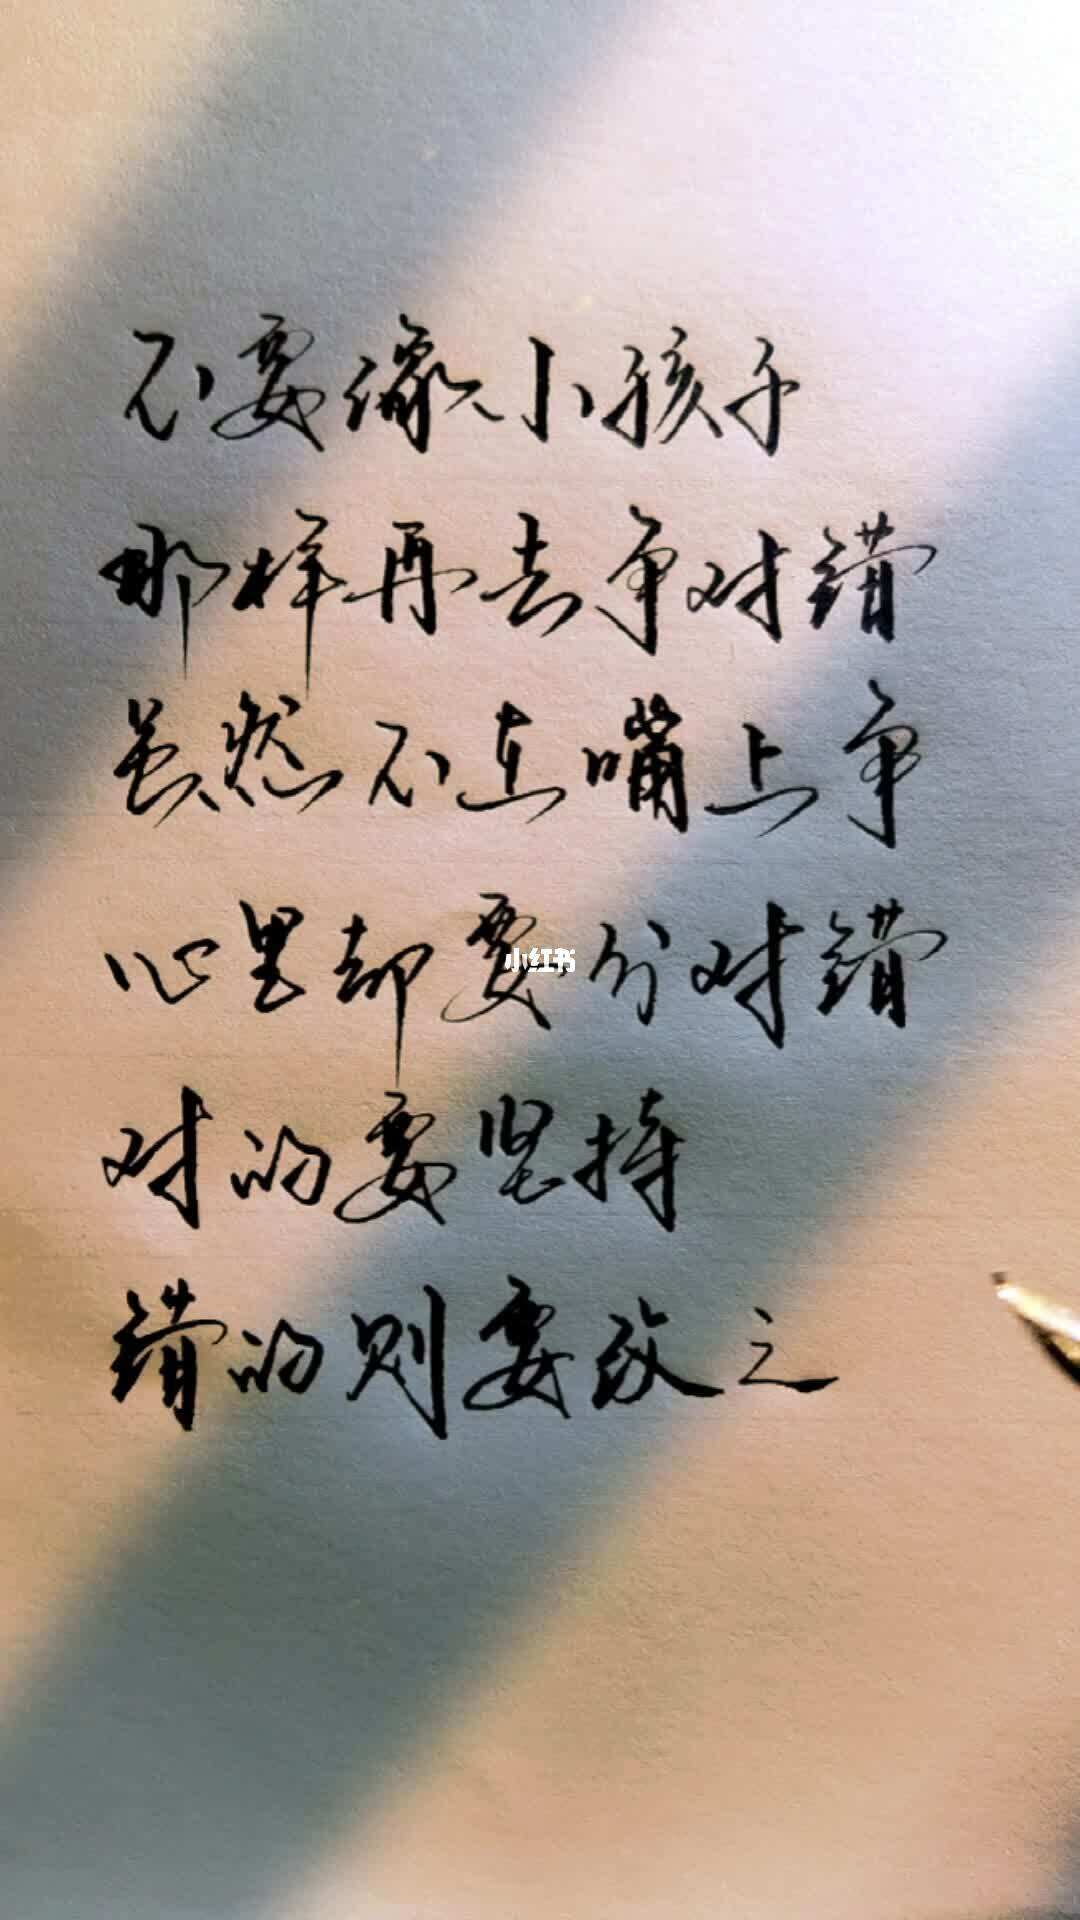 不要像小孩子
那样再去争对错
虽然不在嘴上争
心里却要分对错
小红书
对的要坚持
错的则要改之